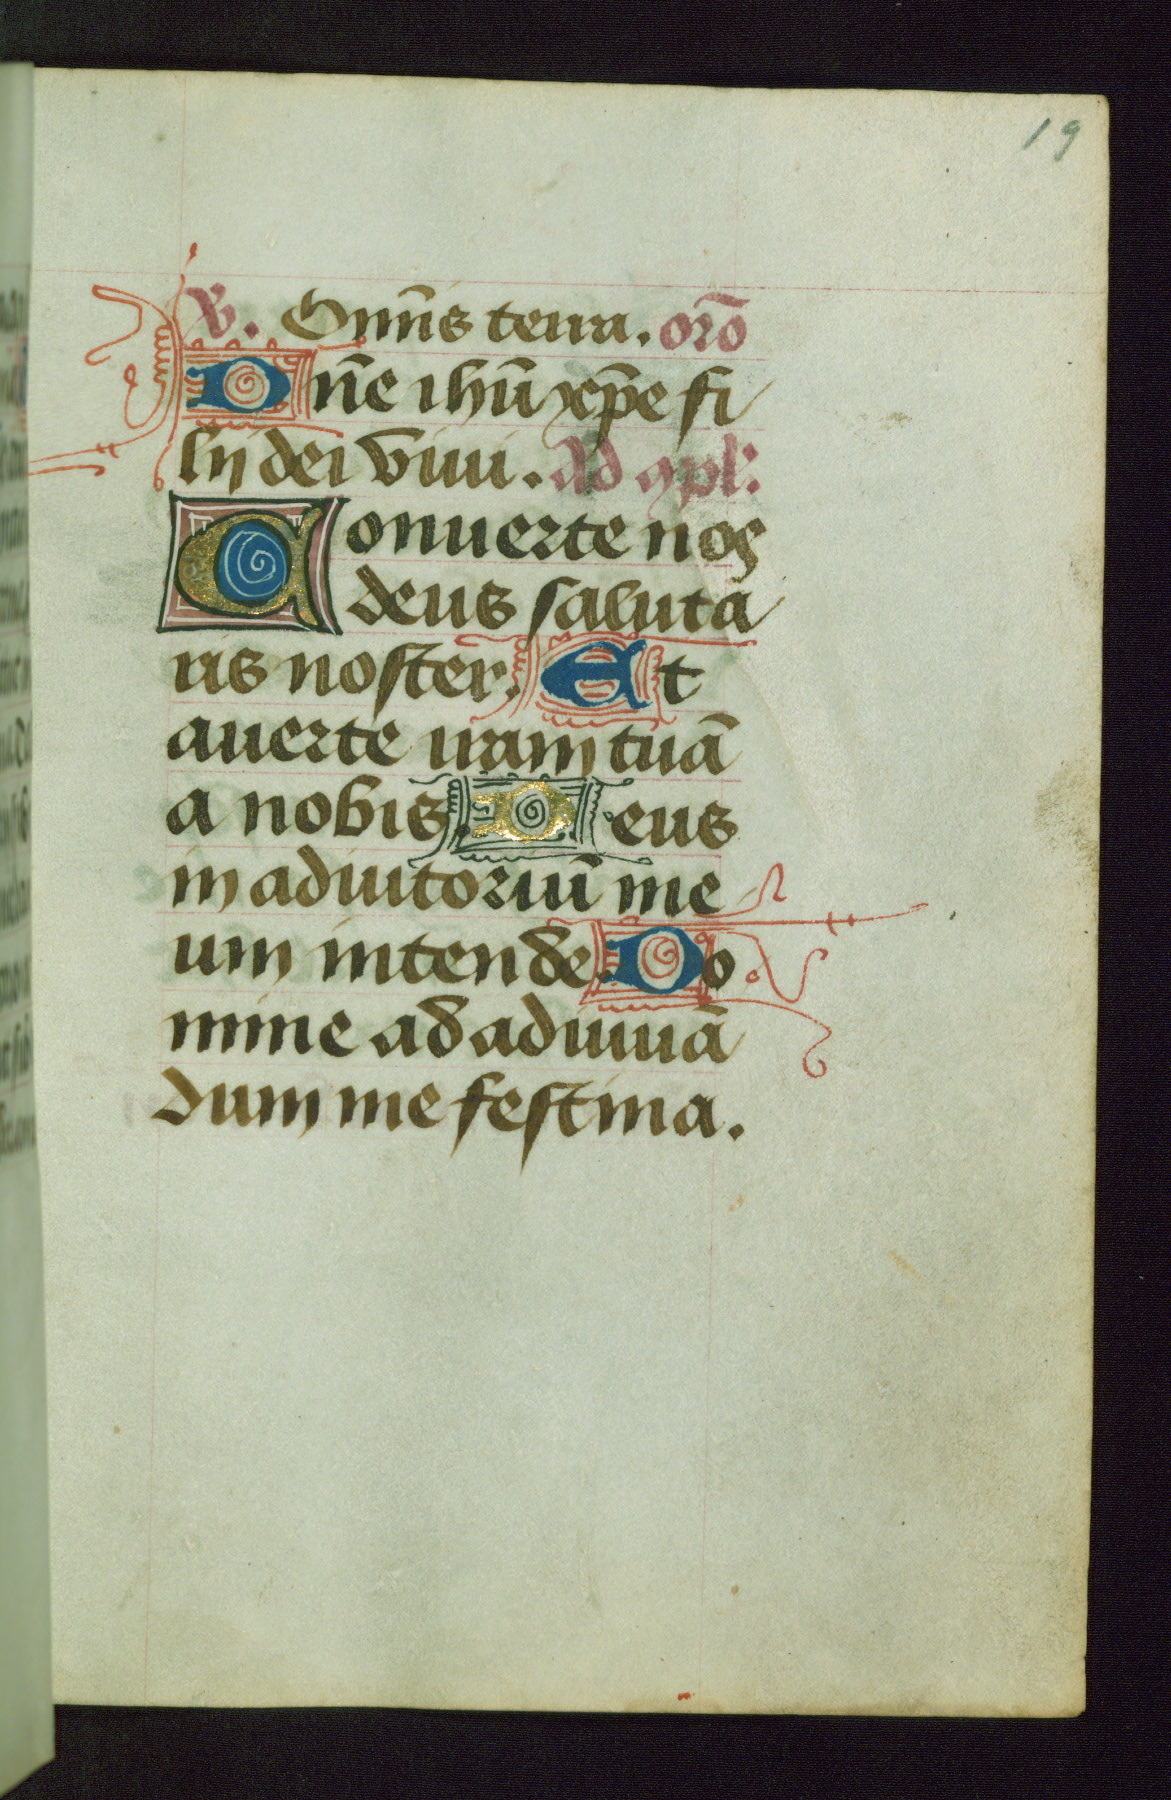 19
V. Om̄is terra. or̄o
Dn̄e ihū xp̄e fi
lij dei viui. Ad 9pl:
Conuerte nos
deus saluta
ris noster. Et
auerte iram tuā
a nobis. Deus
in adiutoriū me
um intende. Do
mine ad adiuuā
dum me festina.